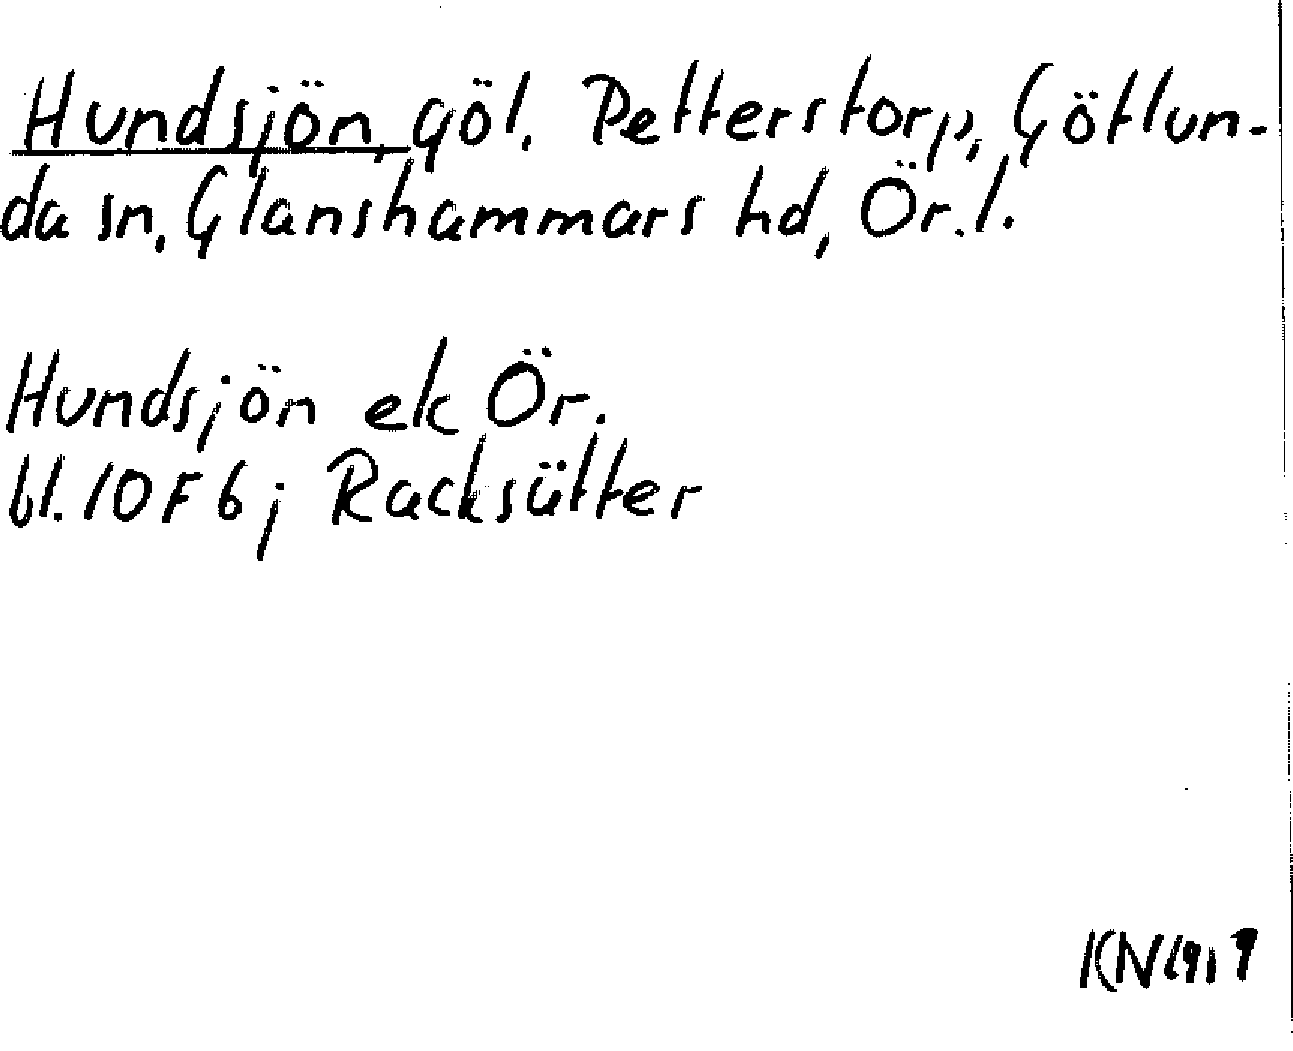 Hundsjön, göl. Petterstorp, Götlun-
da sn, Glanshammars hd, Ör. l.
Hundsjön ek Ör.
bl. 10 F 6 j Racksätter